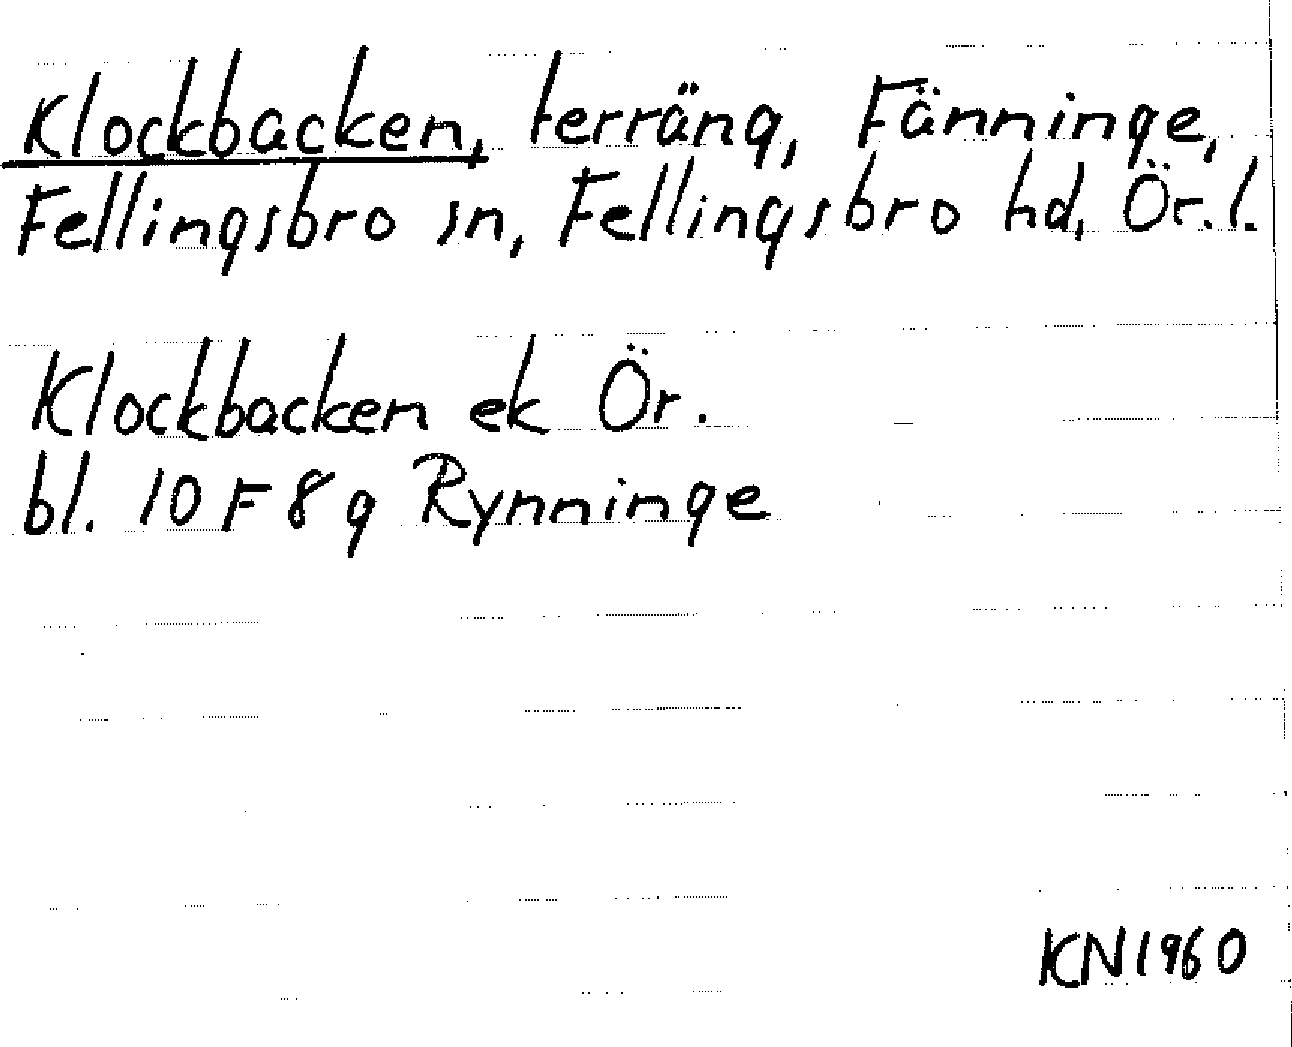 Klockbacken, terräng, Fänninge,
Fellingsbro sn, Fellingsbro hd, Ör. l.
Klockbacken ek Ör.
bl. 10 F 8 g Rynninge
KN 1960